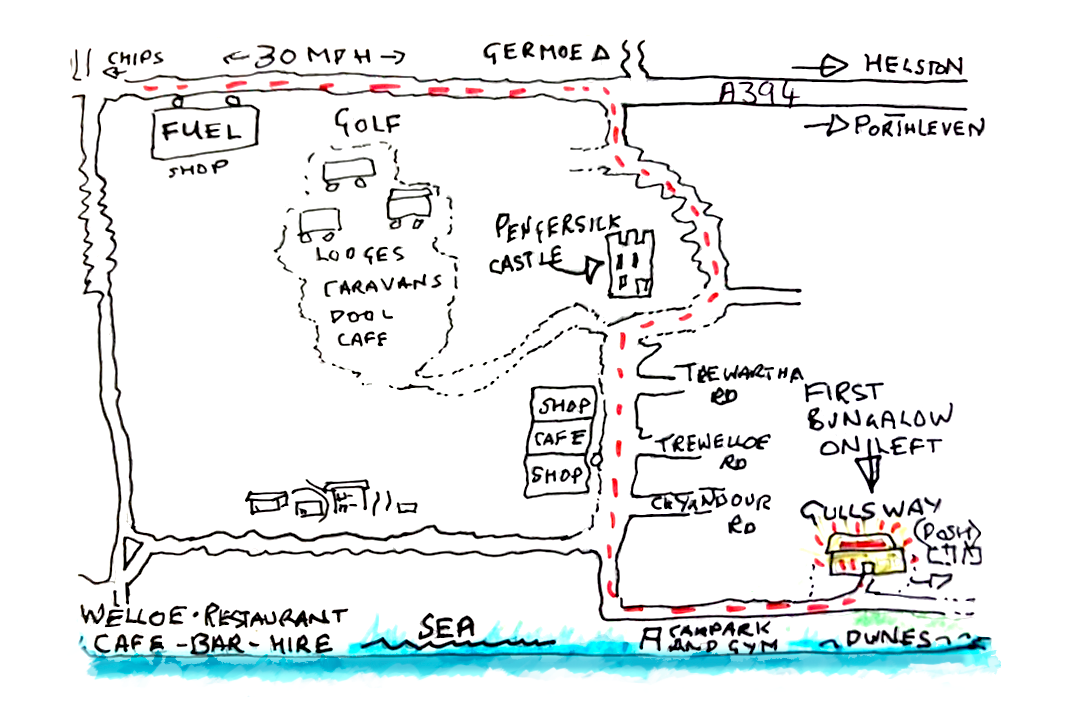 CHIPS
← 30 MPH →
GERMOE
HELSTON
A394
PORTHLEVEN
FUEL
SHOP
GOLF
LODGES
CARAVANS
POOL
CAFE
PENGERSICK
CASTLE
TREWARTHA
RD
FIRST
BUNGALOW
ON LEFT
SHOP
CAFE
SHOP
TREWELLOE
RD
CHYANDOUR
RD
GULLSWAY
(POSH)
WELLOE · RESTAURANT
CAFE - BAR - HIRE
SEA
CARPARK
AND GYM
DUNES